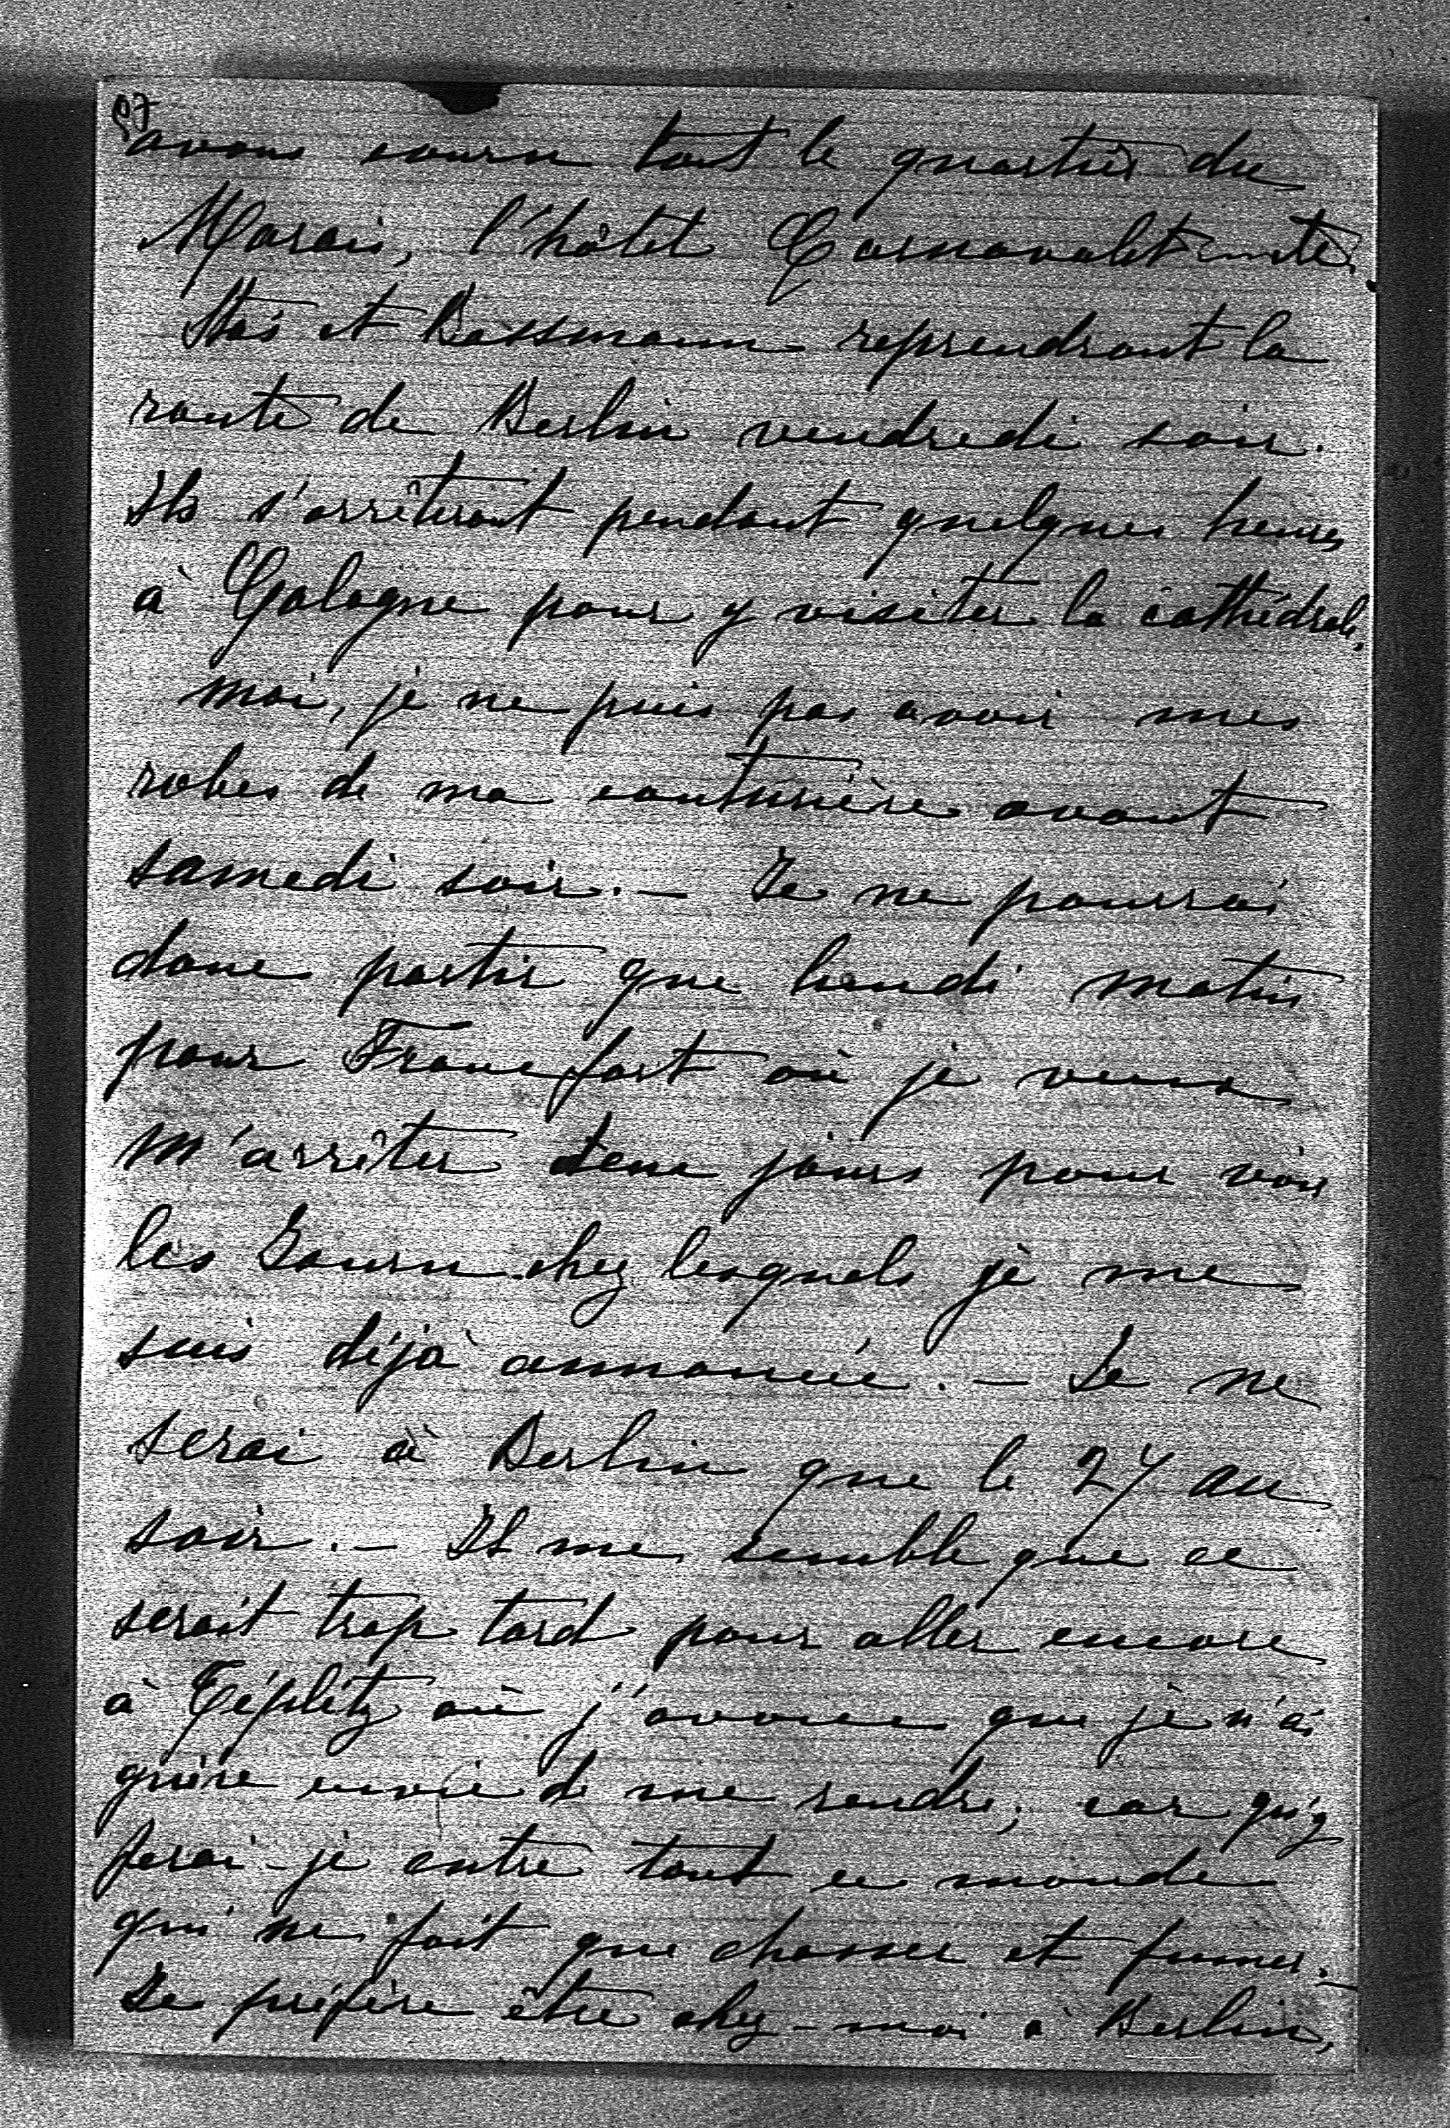 97
avons couru tout le quartier du
Marais, l'hôtel Carnavalet etc.
Stas et Rassmann reprendront la
route de Berlin vendredi soir.
Ils s'arrêteront pendant quelques heures
à Cologne pour y visiter la cathédrale,
moi, je ne puis pas avoir mes
robes de ma couturière avant
samedi soir. — Je ne pourrai
donc partir que lundi matin
pour Francfort où je veux
m'arrêter deux jours pour voir
les chez lesquels je me
suis déjà annoncée. — Je ne
serai à Berlin que le 27 au
soir. — Il me semble que ce
serait trop tard pour aller encore
à Téplitz où j'avoue que je n'ai
guère envie de me rendre, car qu'y
ferai-je entre tout ce monde
qui ne fait que chasser et fumer. —
Je préfère être chez-moi à Berlin,